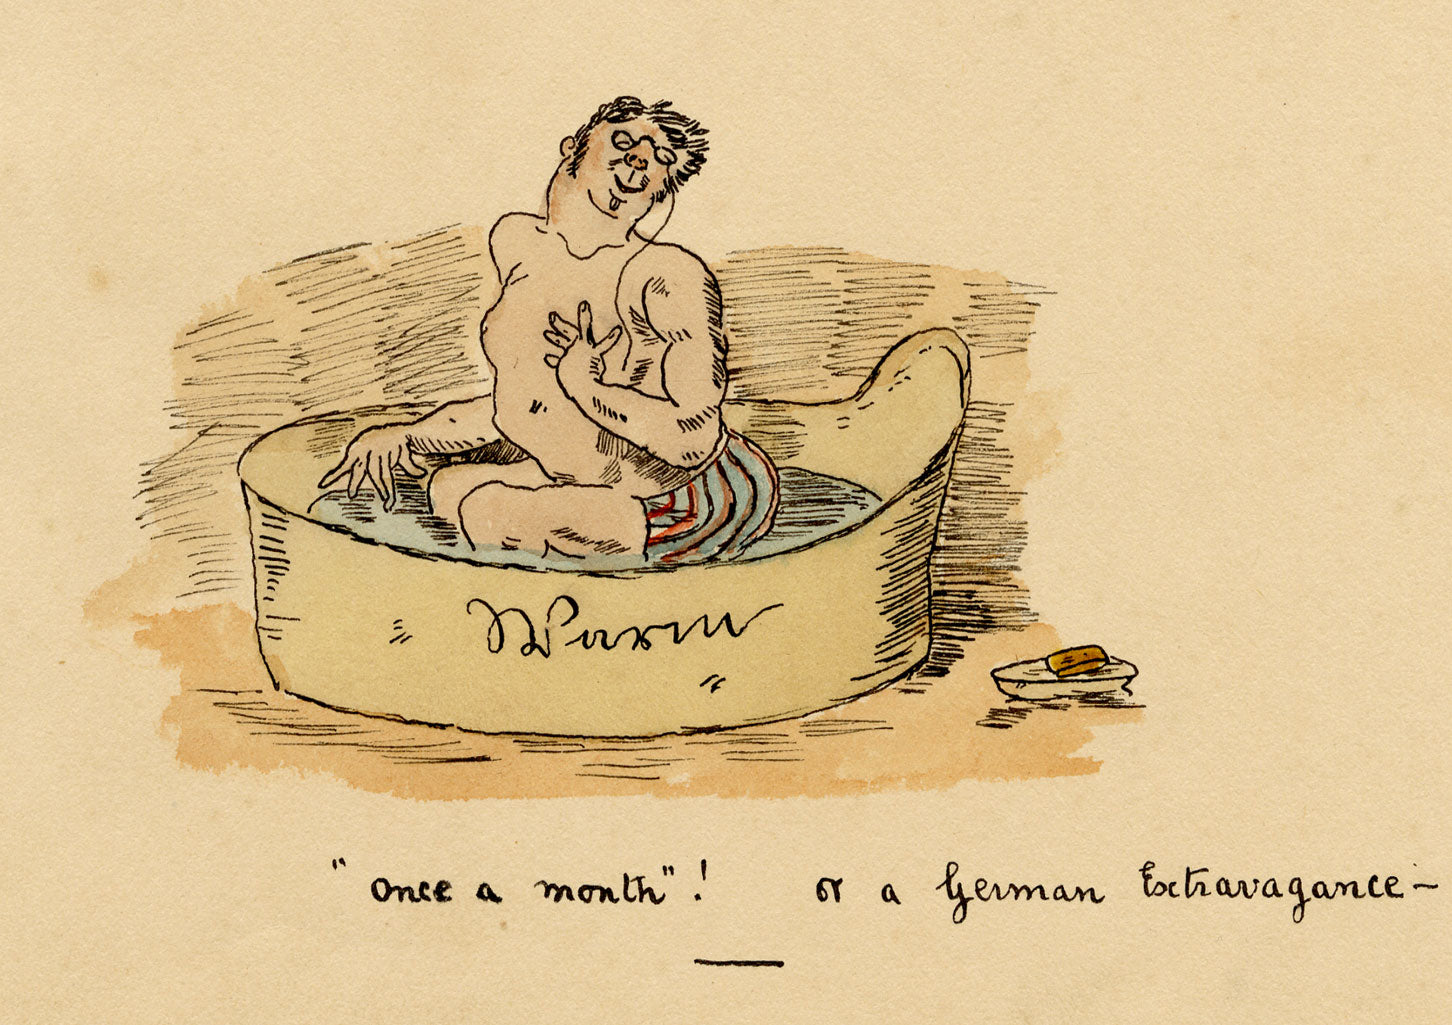 Warm
"once a month"! or a German Extravagance—